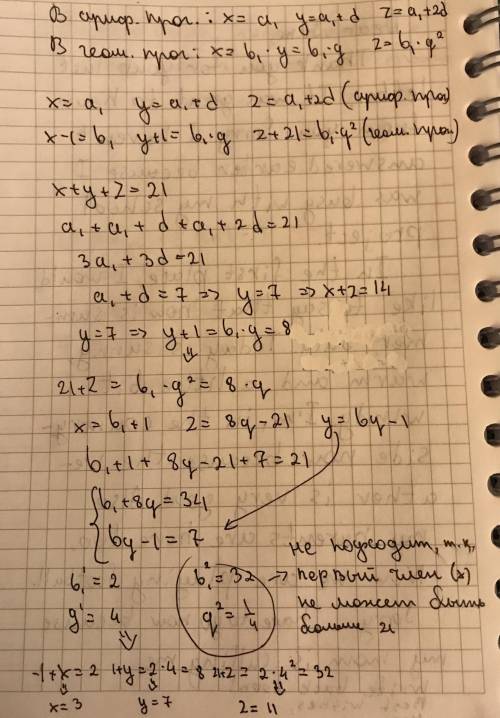 В ариф. прог.: x = a₁ y = a₁ + d z = a₁ + 2d
В геом. прог: x = b₁ · y = b₁ · g z = b₁ · q²
x = a₁ y = a₁ + d z = a₁ + 2d (ариф. прог)
x - 1 = b₁ y + 1 = b₁ · g z + 21 = b₁ · q² (геом. прог)
x + y + z = 21
a₁ + a₁ + d + a₁ + 2d = 21
3a₁ + 3d = 21
a₁ + d = 7 => y = 7 => x + z = 14
y = 7 => y + 1 = b₁ · g = 8
⇓
21 + z = b₁ · g² = 8 · q
x = b₁ + 1 z = 8q - 21 y = bq - 1
b₁ + 1 + 8q - 21 + 7 = 21
{ b₁ + 8q = 34
bq - 1 = 7
не подходит, т.к,
b₁¹ = 2 b₁² = 32 → первый член (x)
g¹ = 4 q² = 1/4 не может быть
больше 21
⇓
-1 + x = 2 1 + y = 2 · 4 = 8 21 + z = 2 · 4² = 32
x = 3 y = 7 z = 11